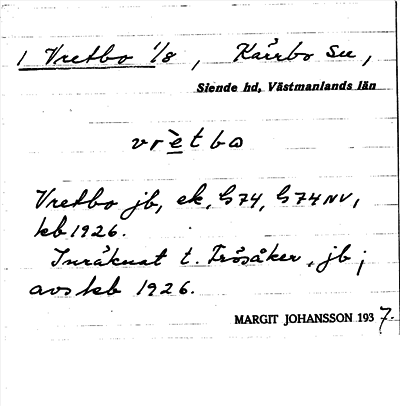 1 Vretbo 1/8, Kärrbo sn,
Siende hd, Västmanlands län
vrètbo
Vretbo jb, ek, G74, G74NV,
kb 1926.
Inräknat t. Frösåker, jb;
avs kb 1926.
MARGIT JOHANSSON 1937.